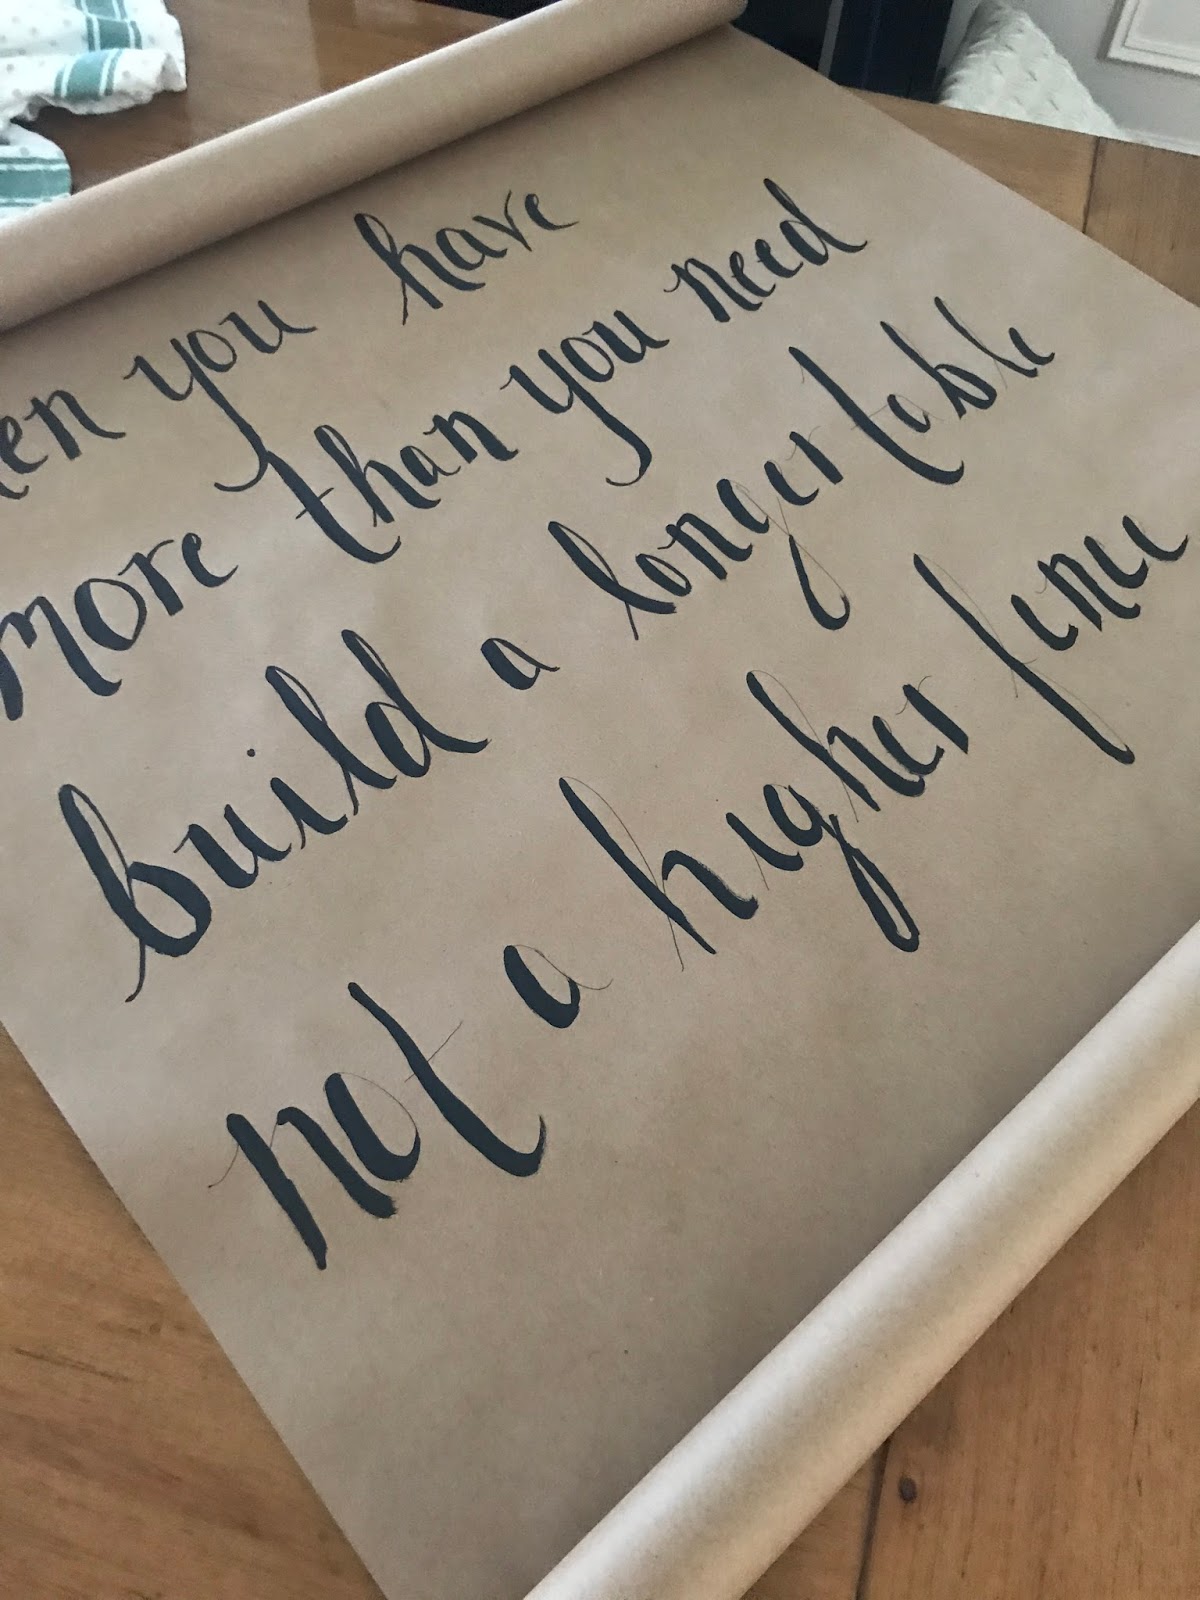 en you have
more than you need
build a longer table
not a higher fence